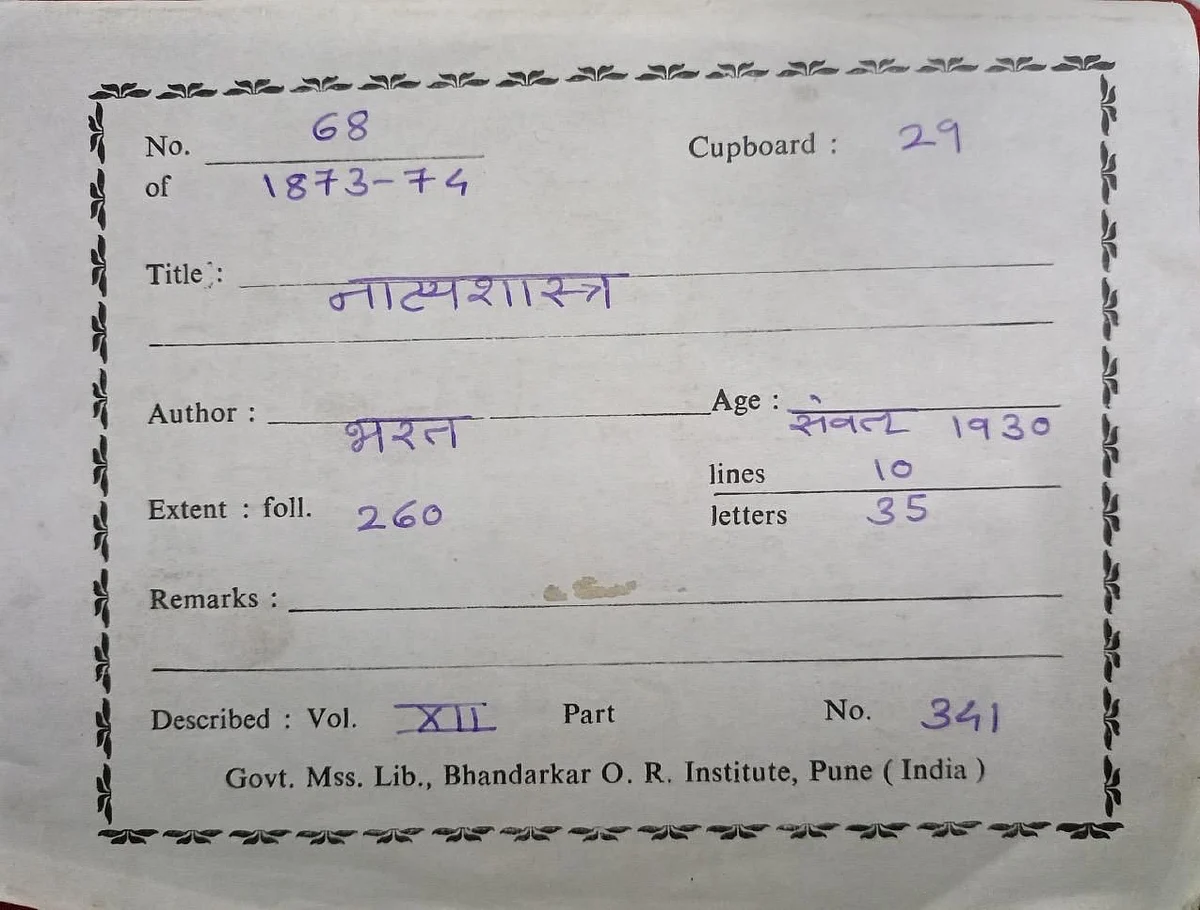 No. 68 Cupboard : 29
of 1873-74
Title : नाट्यशास्त्र
Author : भरत Age : संवत् 1930
lines 10
Extent : foll. 260 letters 35
Remarks :
Described : Vol. XII Part No. 341
Govt. Mss. Lib., Bhandarkar O. R. Institute, Pune ( India )